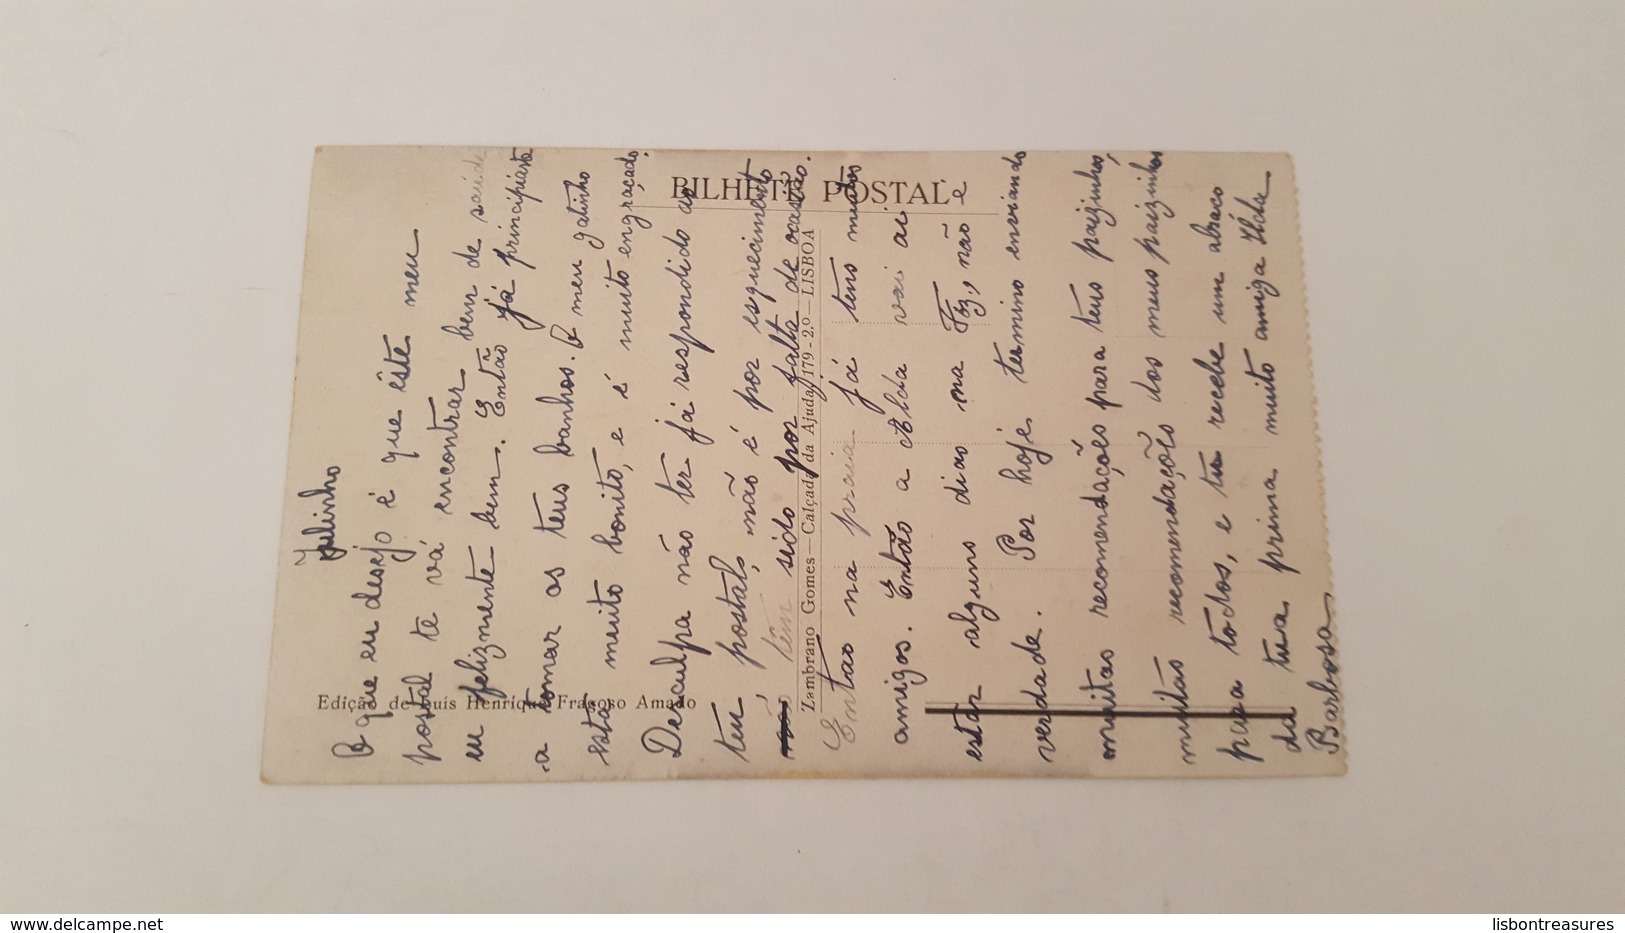 BILHETE POSTAL
Edição de Luís Henrique Fragoso Amado
Zambrano Gomes — Calçada da Ajuda, 179-2.º — LISBOA
Julinho
O que eu desejo é que êste meu
postal te vá encontrar bem de saúde
eu felizmente bem. Então já principiaste
a tomar os teus banhos. O meu gatinho
está muito bonito, e é muito engraçado.
Desculpa não ter já respondido ao
teu postal, não é por esquecimento
tem sido por falta de ocasião.
Então na praia já tens muitos
amigos. Então a Alda vai aí
estar alguns dias na Foz, não é
verdade. Por hoje termino enviando
muitas recomendações para teus paizinhos,
muitas recomendações dos meus paizinhos
para todos, e tu recebe um abraço
da tua prima muito amiga Ilda
Barbosa
lisbontreasures
www.delcampe.net